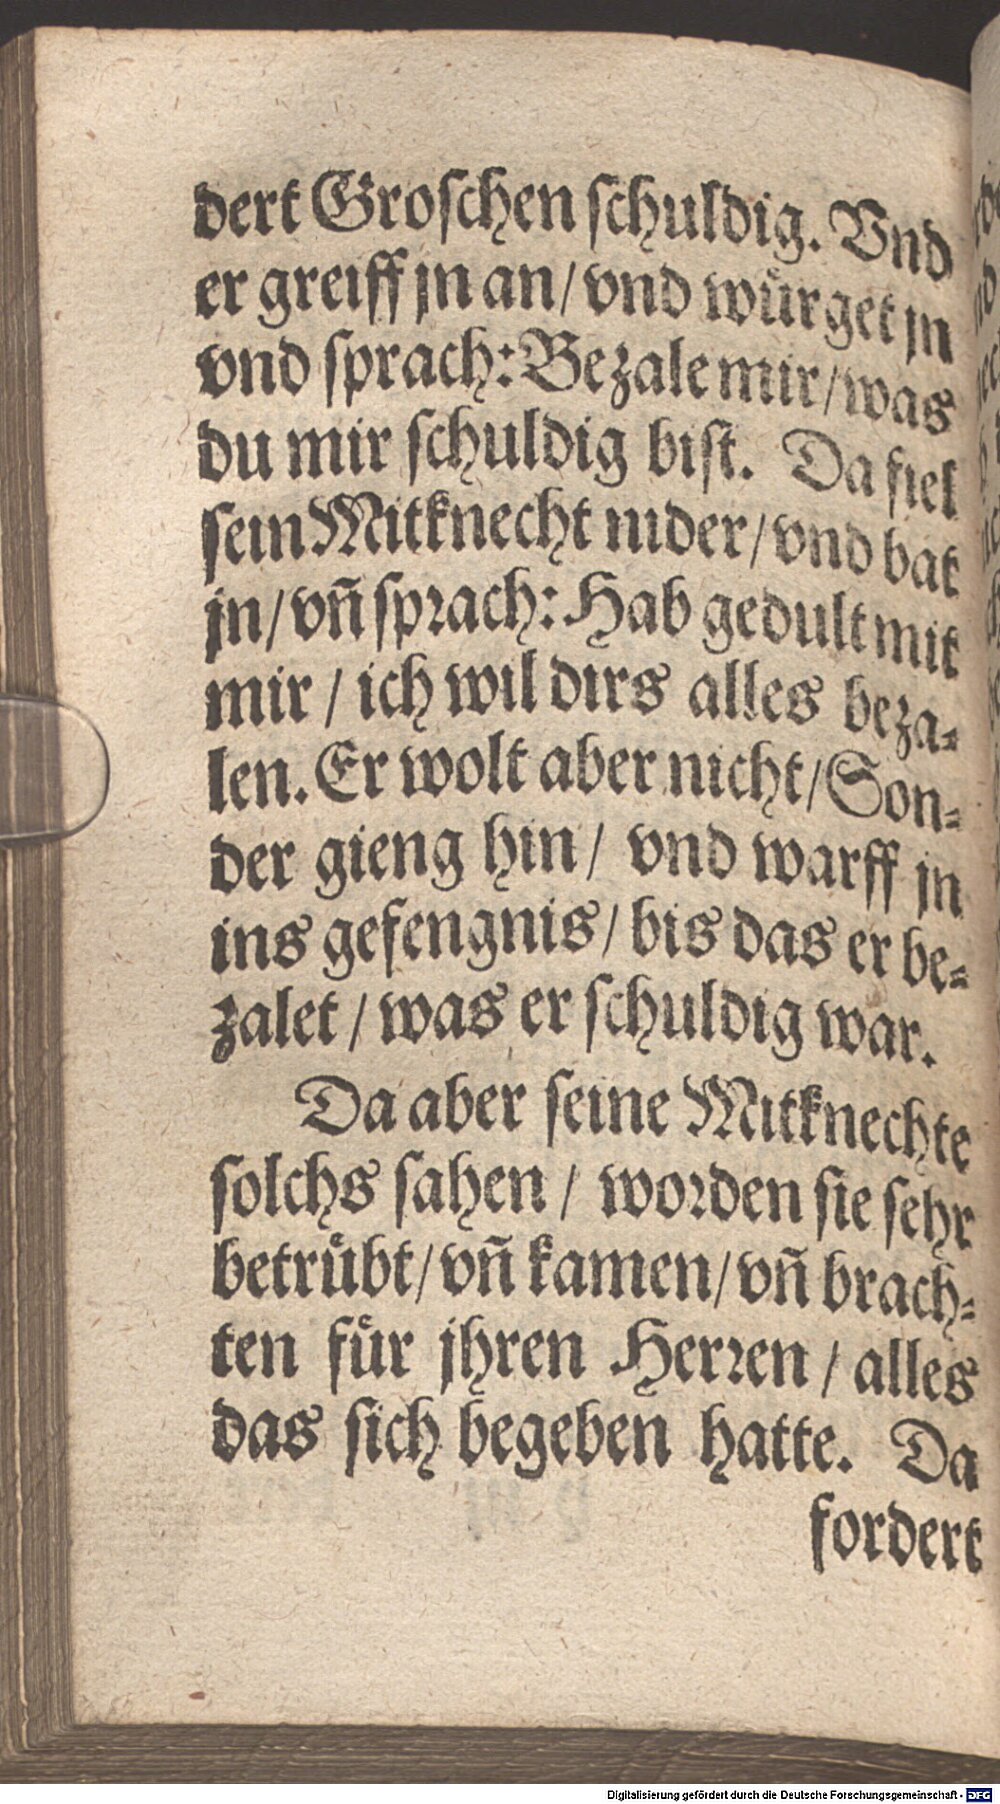 dert Groſchen ſchuldig. Vnd
er greiff jn an/ vnd wuͤrget jn
vnd ſprach: Bezale mir/ was
du mir ſchuldig biſt. Da fiel
ſein Mitknecht nider/ vnd bat
jn/ vñ ſpꝛach: Hab gedult mit
mir / ich wil dirs alles beza⸗
len. Er wolt aber nicht/ Son⸗
der gieng hin/ vnd warff jn
ins gefengnis/ bis das er be⸗
zalet / was er ſchuldig war.
Da aber ſeine Mitknechte
ſolchs ſahen / woꝛden ſie ſehr
betruͤbt/ vñ kamen/ vñ brach⸗
ten fuͤr jhren Herꝛen / alles
das ſich begeben hatte. Da
fordert
Digitalisierung gefördert durch die Deutsche Forschungsgemeinschaft - DFG